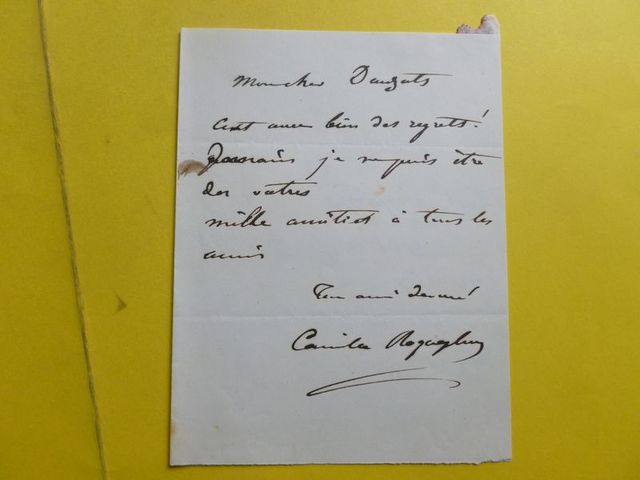 Mon cher Dauzats
C'est avec bien des regrets!
je ne puis être
des vôtres
mille amitiés à tous les
amis
Ton ami dévoué
Camille Roqueplan